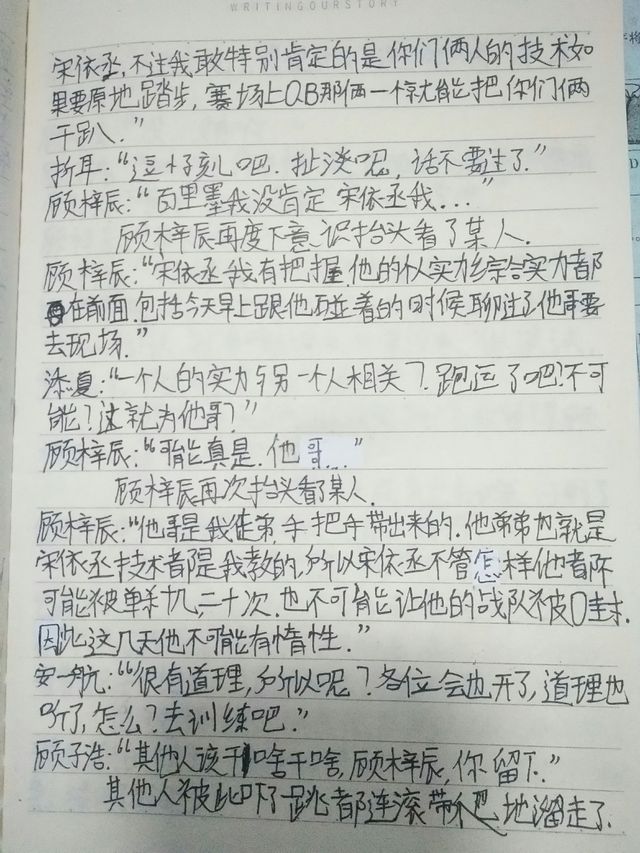 WRITINGOURSTORY
宋依丞,不过我敢特别肯定的是你们俩人的技术如
果要原地踏步,赛场上QB那俩一个就能把你们俩
干趴."
折耳:"逗樗刻吧.扯淡呢,话不要过了."
顾梓辰:"百里墨我没肯定 宋依丞我..."
顾梓辰再度下意识抬头看了某人.
顾梓辰:"宋依丞我有把握.他的个人实力综合实力都
在前面.包括今天早上跟他碰着的时候聊过了他哥要
去现场."
添夏:"一个人的实力与另一个人相关?.跑运了吧!不可
能?这就为他哥?"
顾梓辰:"可能真是.他哥..."
顾梓辰再次抬头看了某人.
顾梓辰:"他哥是我徒弟手把手带出来的.他弟弟也就是
宋依丞技术都是我教的,所以宋依丞不管怎样他都不
可能被单杀几,二十次.也不可能让他的战队被0封.
因此这几天他不可能有惰性."
安一航:"很有道理,所以呢?各位会也开了,道理也
听了,怎么?去训练吧."
顾子浩:"其他人该干啥干啥,顾梓辰,你留下."
其他人被此吓了跳都连滚带爬地溜走了.